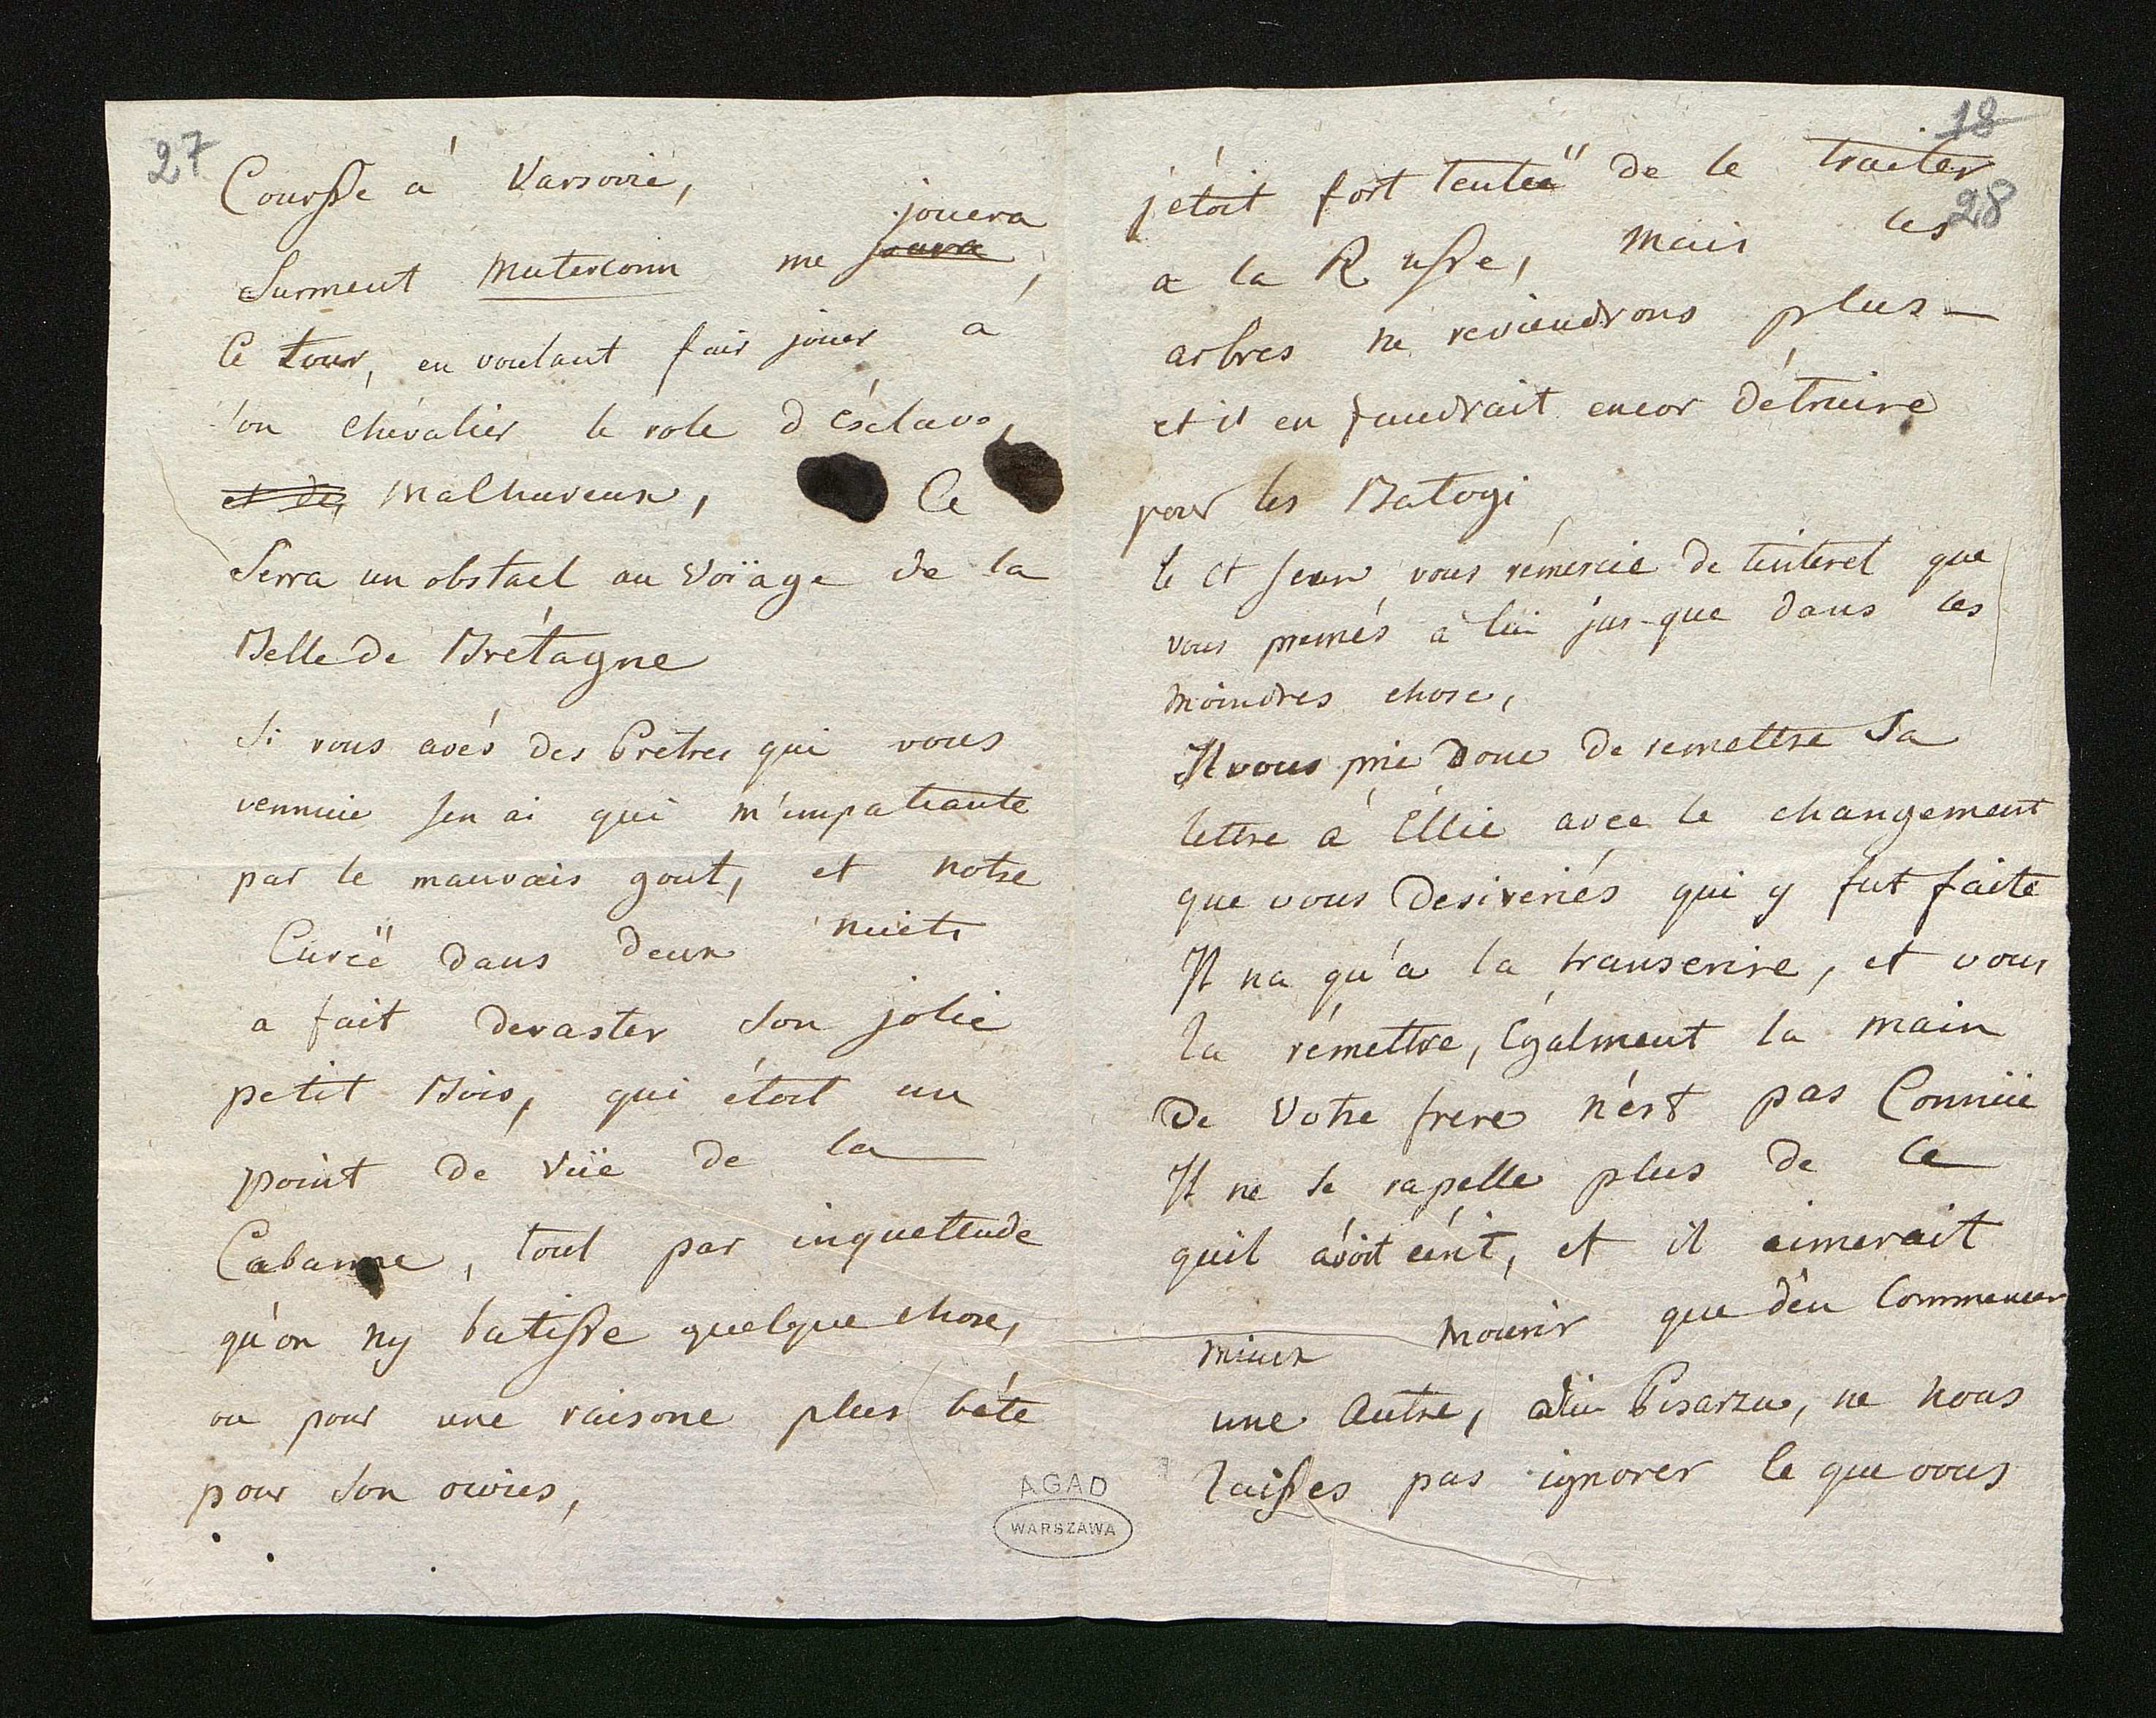 27
Coursse a Varsovie,
jouera
Surment Muterconn me joura,
Ce tour, en voulant fair jouer a
son chevalier le role d'ésclave,
et de, Malhureux, Ce
Serra un obstacl au voïage de la
Belle de Brétagne
Si vous avés des Pretres qui vous
vennuie jen ai qui m'impatiante
par le mauvais gout, et notre
Curéë dans deux nuits
a fait devaster son jolie
petit Bois, qui étoit un
point de vüe de la
Cabanne, tout par inquettude
qu'on ny batisse quelque chose,
ou pour une raisone plus béte
pour son
18
28
j'étoit fort tentéë de le traiter
a la Russe, Mais les
arbres ne reviendrons plus
et il en faudrait encor détruire
pour les Batogi
le Ct vous rémercie de linteret que
vous prenés a lui jus-que dans les
moindres chose,
Il vous prie donc de remettre Sa
lettre á Éllie avec le changement
que vous desireriés qui y fut faite
Il na qu'a la transcrire, et vous
la rémettre, Également la main
de Votre frere n'ést pas Connüe
Il ne se rapelle plus de ce
quil avoit écrit, et il aimerait
mieux mourir que d'en Commencer
une Autre, adiu Pisarzu, ne nous
laisses pas ignorer le que vous
AGAD
WARSZAWA